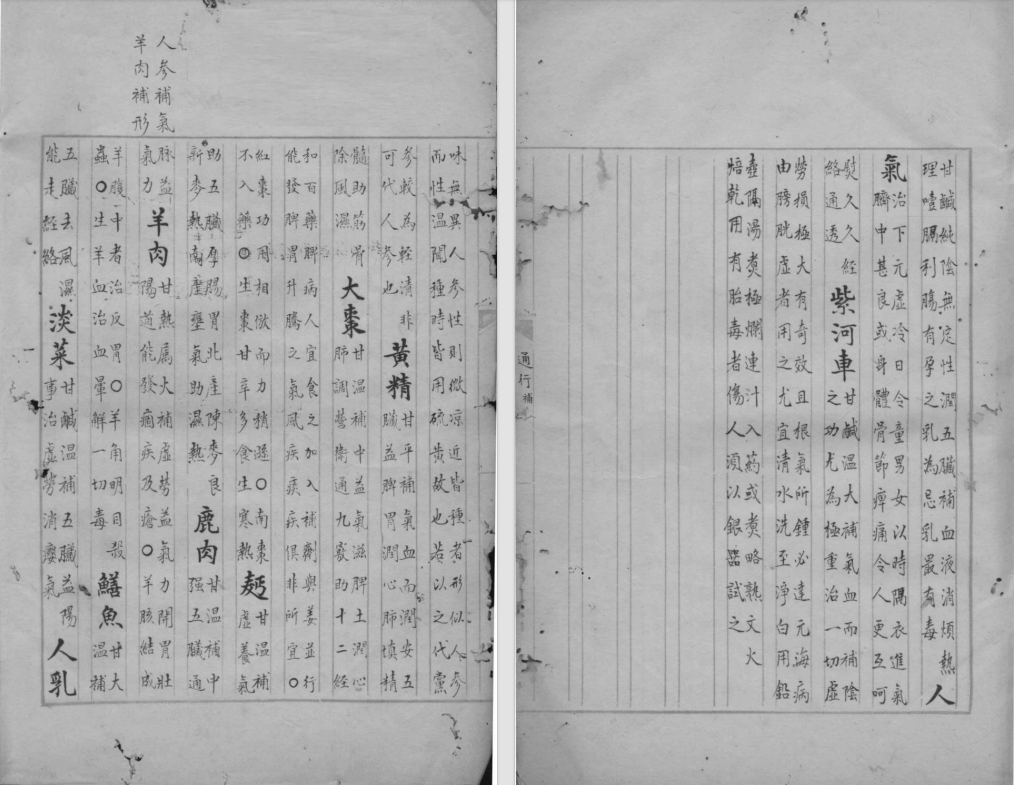 人參補氣
羊肉補形
味無異人參性則微涼近皆種者形似人參
而性溫聞種時皆用硫黄故也若以之代黨
參較為輕清非
可代人參也
黄精
甘平補氣血而潤安五
臟益脾胃潤心肺慎精
髓助筋骨
除風濕
大棗
甘溫補中益氣滋脾土潤心
肺調營衛通九竅助十二經
和百藥脾病人宜食之加入補劑與姜並行
能發脾胃升騰之氣風疾疾疾俱非所宜○
紅棗功用相倣而力稍遜○南棗
不入藥○生棗甘辛多食生寒熱
麪
甘溫補
虛養氣
助五臟厚腸胃北產陳麥良
新麥熱南產壅氣助濕熱
鹿肉
甘溫補中
强五臟通
脉益
氣力
羊肉
甘熱属火補虛勞益氣力開胃壯
陽道能發痼疾及瘡○羊胲結成
羊腹中者治反胃○羊角明目殺
蟲○生羊血治血暈解一切毒
鱔魚
甘大
溫補
五臟去風濕
能走經絡
淡菜
甘鹹溫補五臟益陽
事治虛勞消癭氣
人乳
通行 補
甘鹹純陰無定性潤五臟補血液消煩熱
理噎膈利腸有孕之乳為忌乳最有毒
人
氣
治下元虛冷日令童男女以時隔衣進氣
臍中甚良或身體骨節痺痛令人更互呵
熨久久經
絡通透
紫河車
甘鹹溫大補氣血而補陰
之功尤為極重治一切虛
勞損極大有奇效且根氣所鍾必達元海病
由膀胱虛者用之尤宜清水洗至淨白用鉛
壺隔湯煑極爛連汁入葯或煑略熟文火
焙乾用有胎毒者傷人須以銀器試之